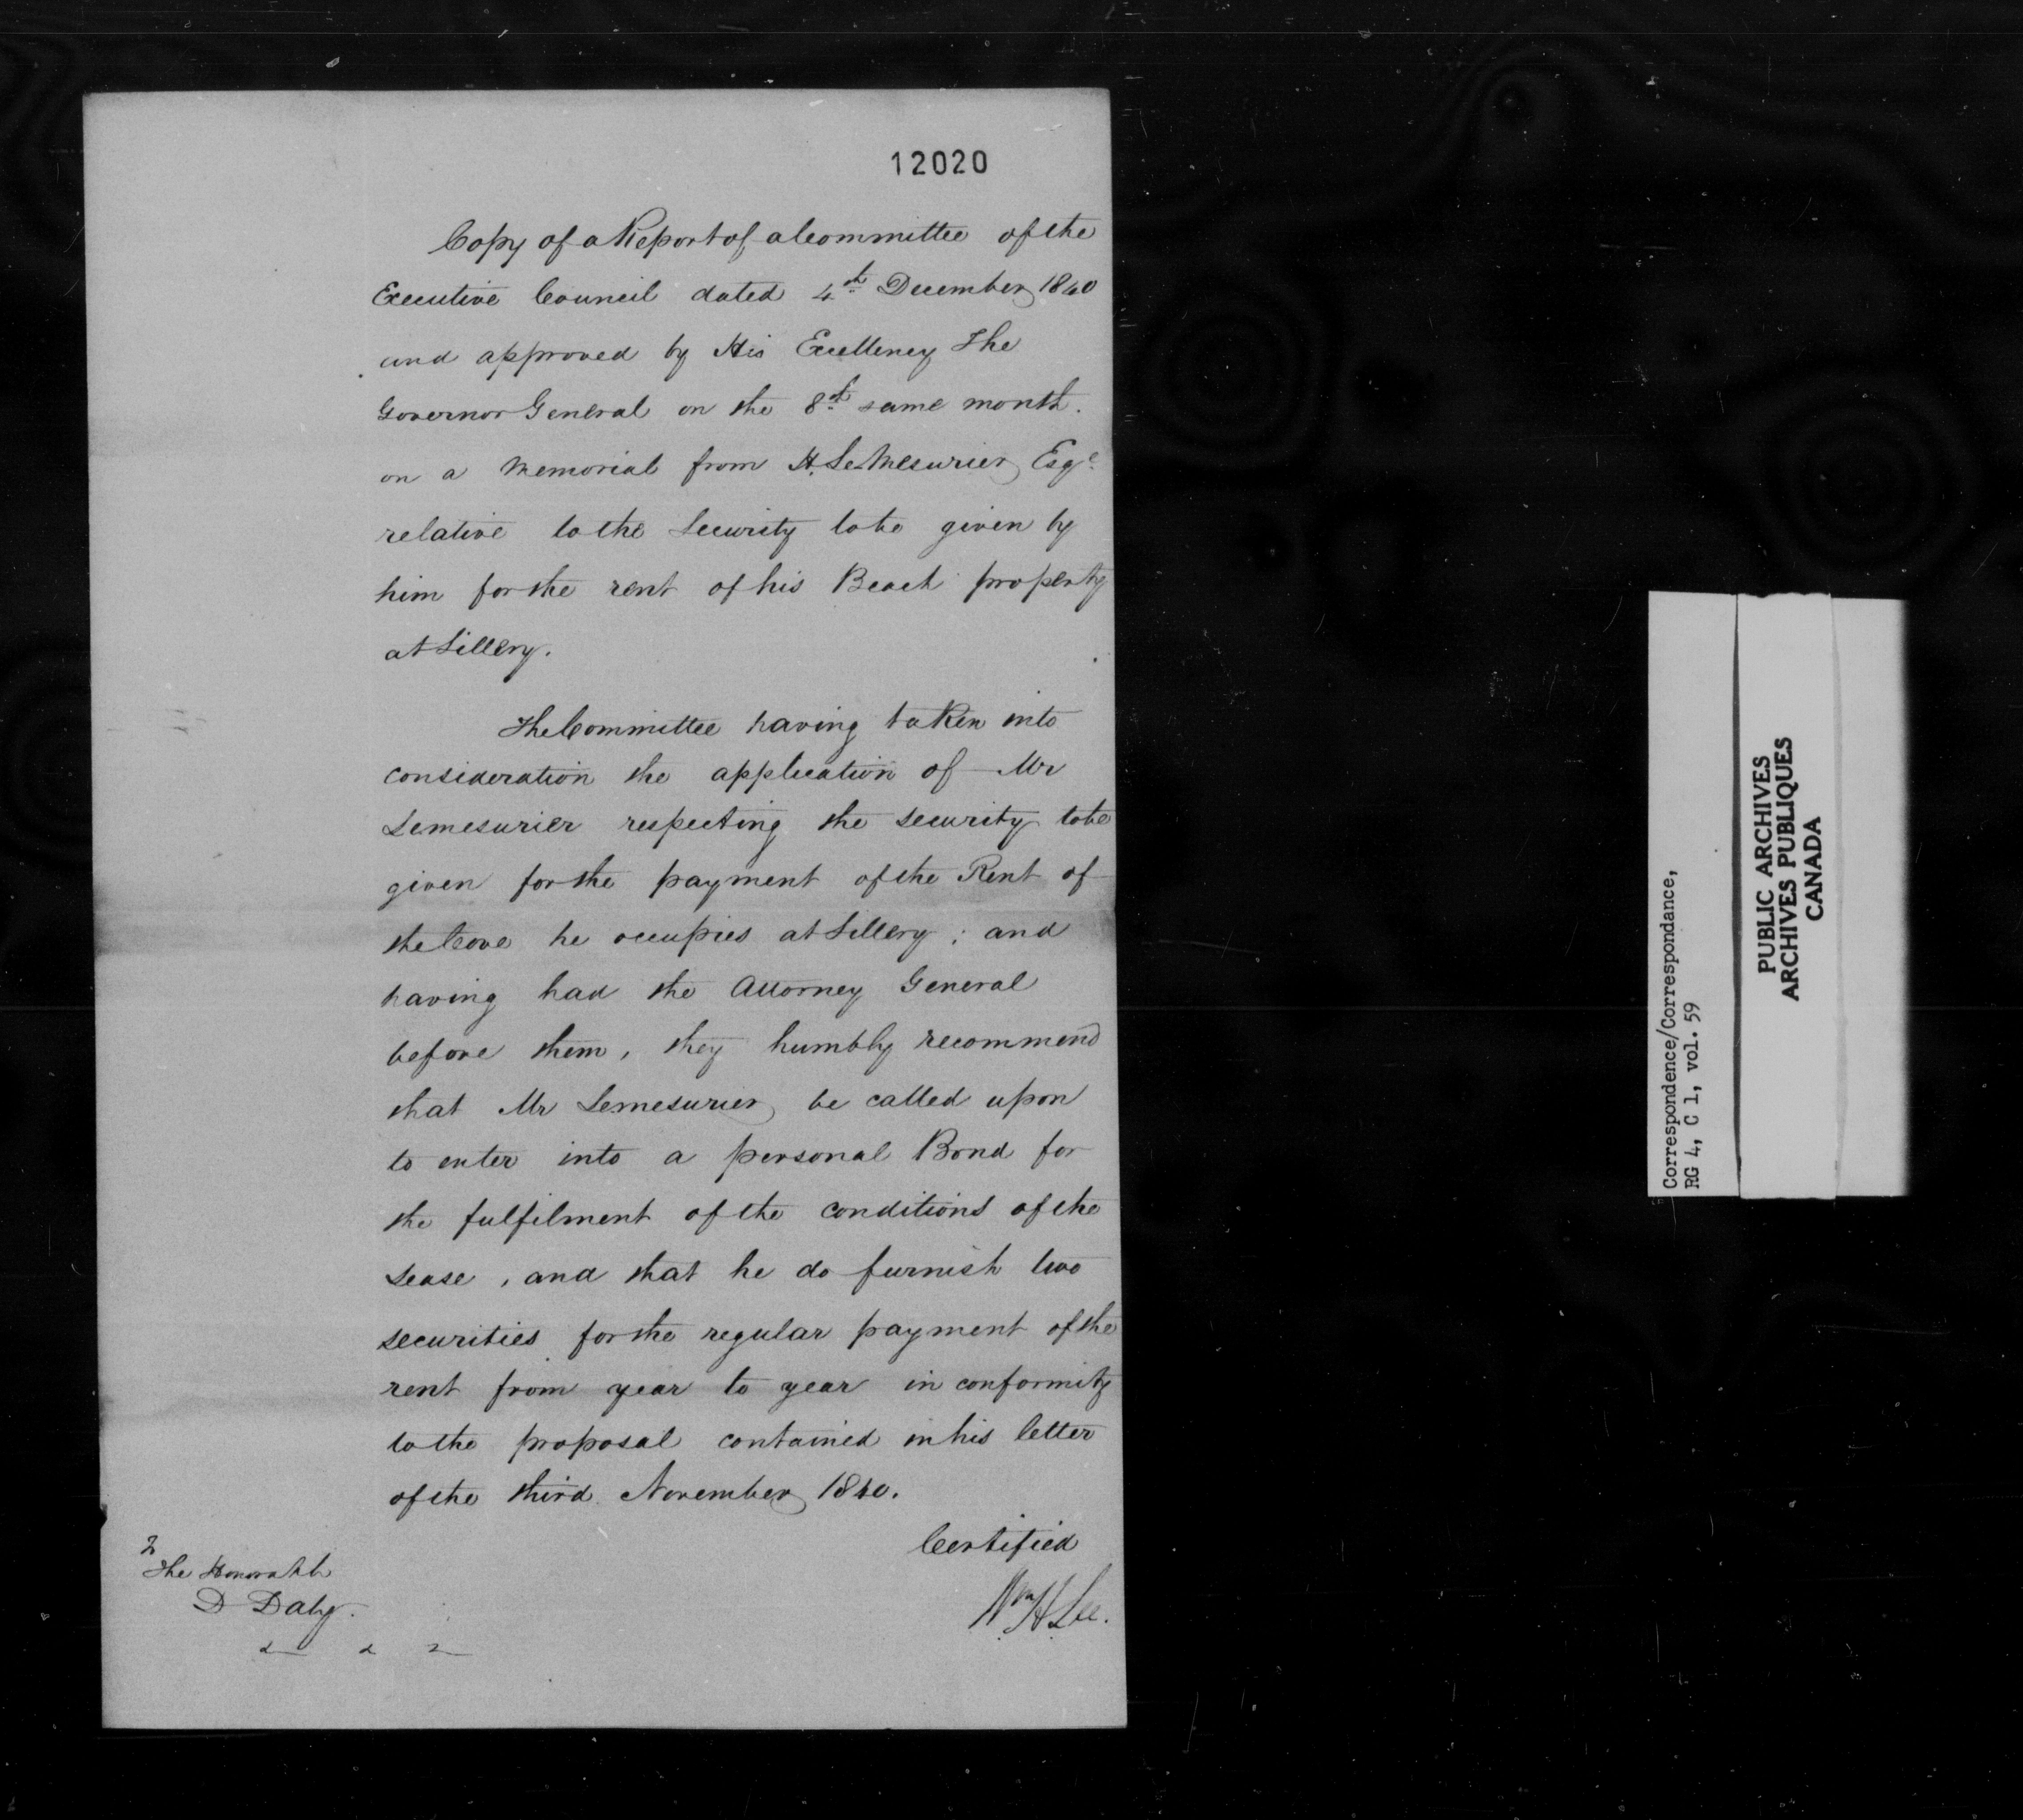 12020
Copy of a Report of a Committee of the
Executive Council dated 4th December 1840
and approved by His Excellency The
Governor General on the 8th same month.
on a Memorial from H. LeMesurier Esqe
relative to the Security to be given by
him for the rent of his Beach property
at Sillery.
The Committee having taken into
consideration the application of Mr
Lemesurier respecting the security to be
given for the payment of the Rent of
the Cove he occupies at Sillery; and
having had the Attorney General
before them, they humbly recommend
that Mr Lemesurier be called upon
to enter into a personal Bond for
the fulfilment of the conditions of the
Lease, and that he do furnish two
securities for the regular payment of the
rent from year to year in conformity
to the proposal contained in his letter
of the third November 1840.
Certified
Wm H. Lee.
The Honorable
D Daly.
Correspondence/Correspondance,
RG 4, C 1, vol. 59
PUBLIC ARCHIVES
ARCHIVES PUBLIQUES
CANADA